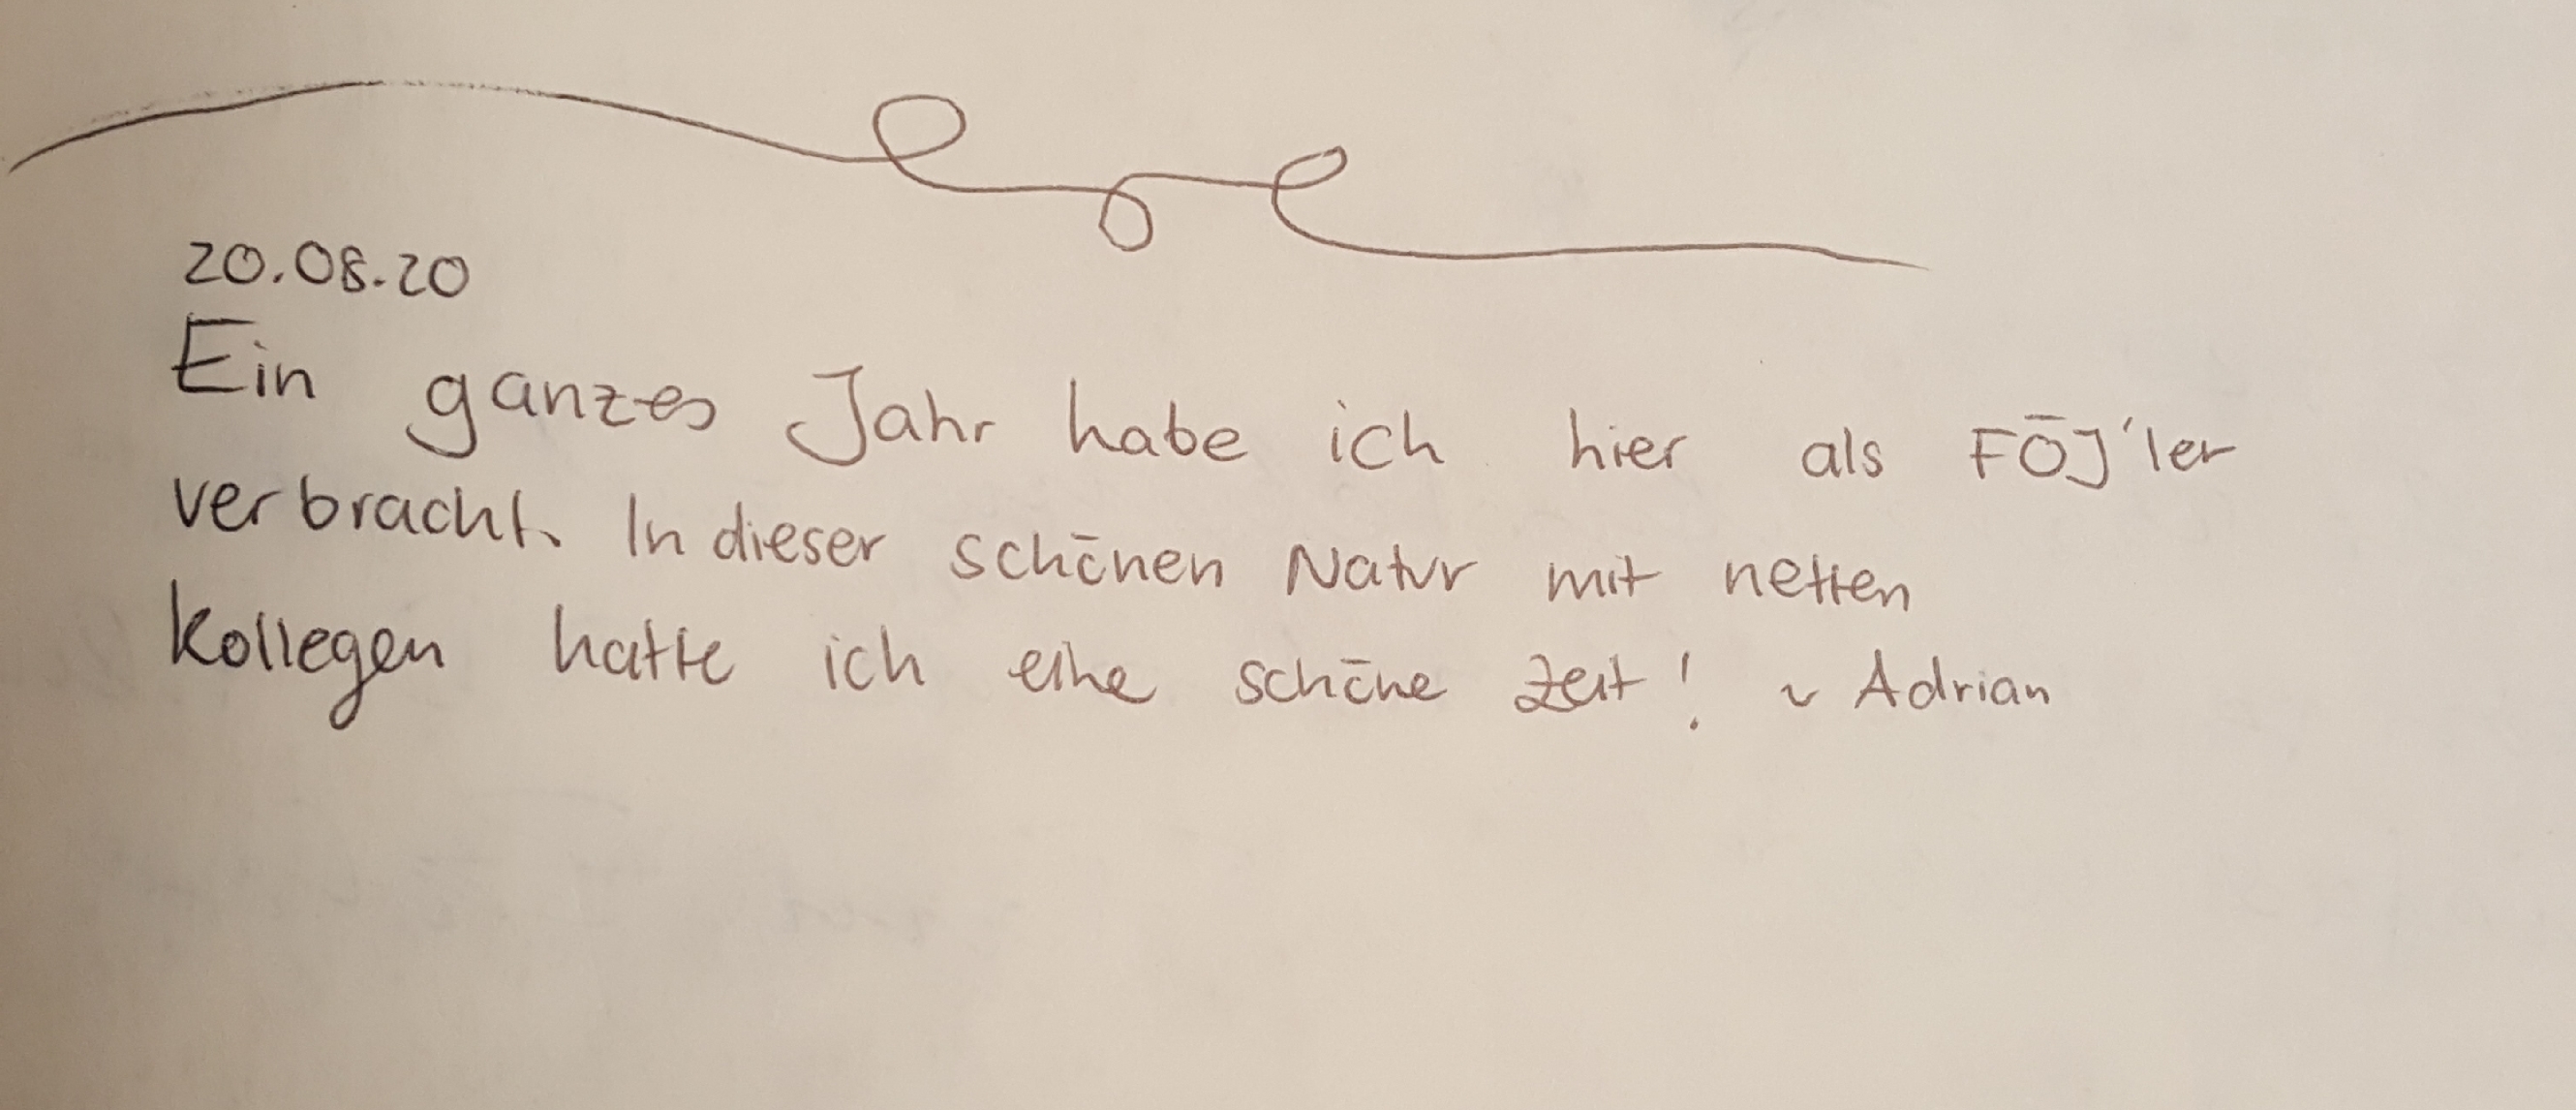 20.08.20
Ein ganzes Jahr habe ich hier als FÖJ'ler
verbracht. In dieser schönen Natur mit netten
Kollegen hatte ich eine schöne Zeit! ~ Adrian